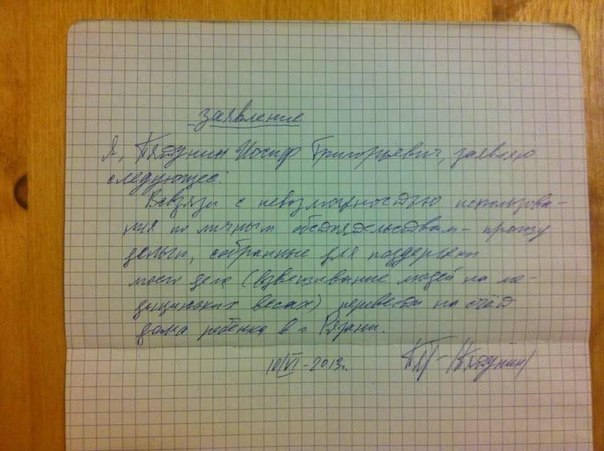 заявление
Я, Пятунин Иосиф Григорьевич, заявляю
следующее:
Всвязи с невозможностью использова-
ния по личным обстоятельствам - прошу
деньги, собранные для поддержки
моего дела (взвешивание людей на ме-
дицинских весах) перевести на счёт
дома ребёнка в г. Рязани.
10/VI - 2013г. (Пятунин)